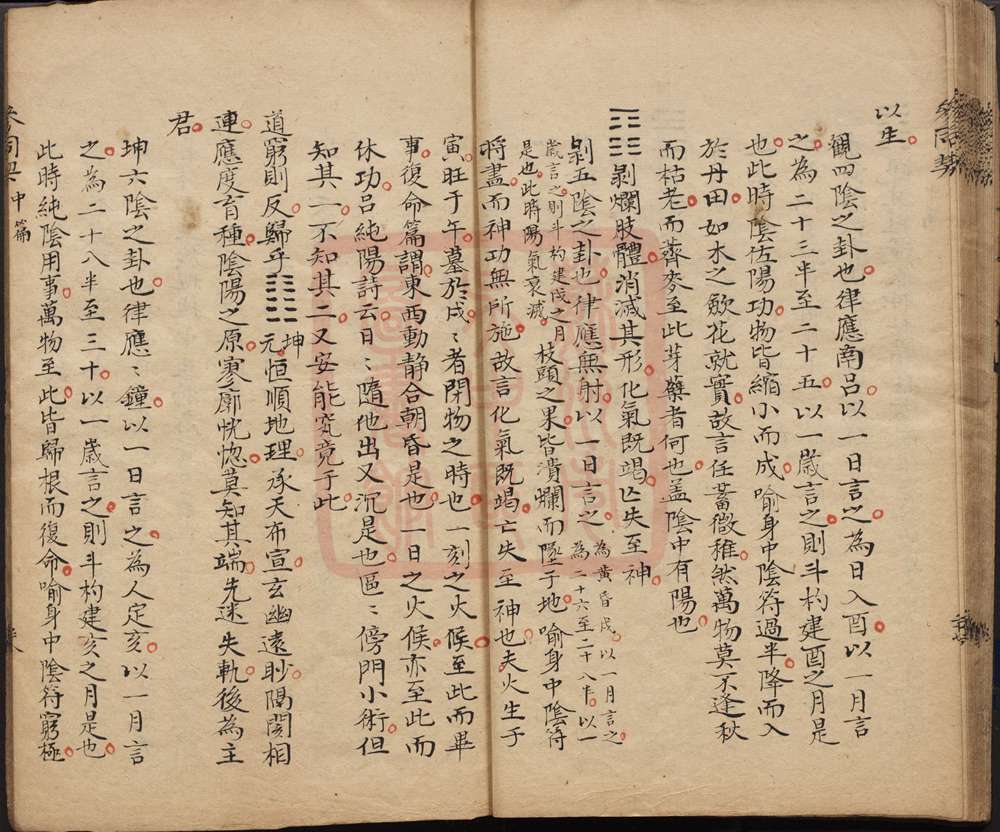 以生
觀四陰之卦也律應南呂以一日言之為日入酉以一月言
之為二十三半至二十五以一歲言之則斗杓建酉之月是
也此時陰佐陽功物皆縮小而成喻身中陰符過半降而入
於丹田如木之歛花就實故言任蓄微稚然萬物莫不逢秋
而枯老而薺麥至此芽蘖者何也盖陰中有陽也
䷖剝爛肢體消滅其形化氣既竭亡失至神
剝五陰之卦也律應無射以一日言之為黄昏戌以一月言之
為二十六至二十八半以一
歲言之則斗杓建戌之月
是也此時陽氣衰減枝頭之果皆潰爛而墜于地喻身中陰符
將盡而神功無所施故言化氣既竭亡失至神也夫火生于
寅旺于午墓於戌〻者閉物之時也一刻之火候至此而畢
事復命篇謂東西動静合朝昏是也一日之火候亦至此而
休功呂純陽詩云日〻隨他出又沉是也區〻傍門小術但
知其一不知其二又安能究竟于此
道窮則反歸乎䷁坤元恒順地理承天布宣玄幽遠眇隔閡相
連應度育種陰陽之原寥廓恍惚莫知其端先迷失軌後為主
君
坤六陰之卦也律應〻鐘以一日言之為人定亥以一月言
之為二十八半至三十以一歲言之則斗杓建亥之月是也
此時純陰用事萬物至此皆歸根而復命喻身中陰符窮極
中篇